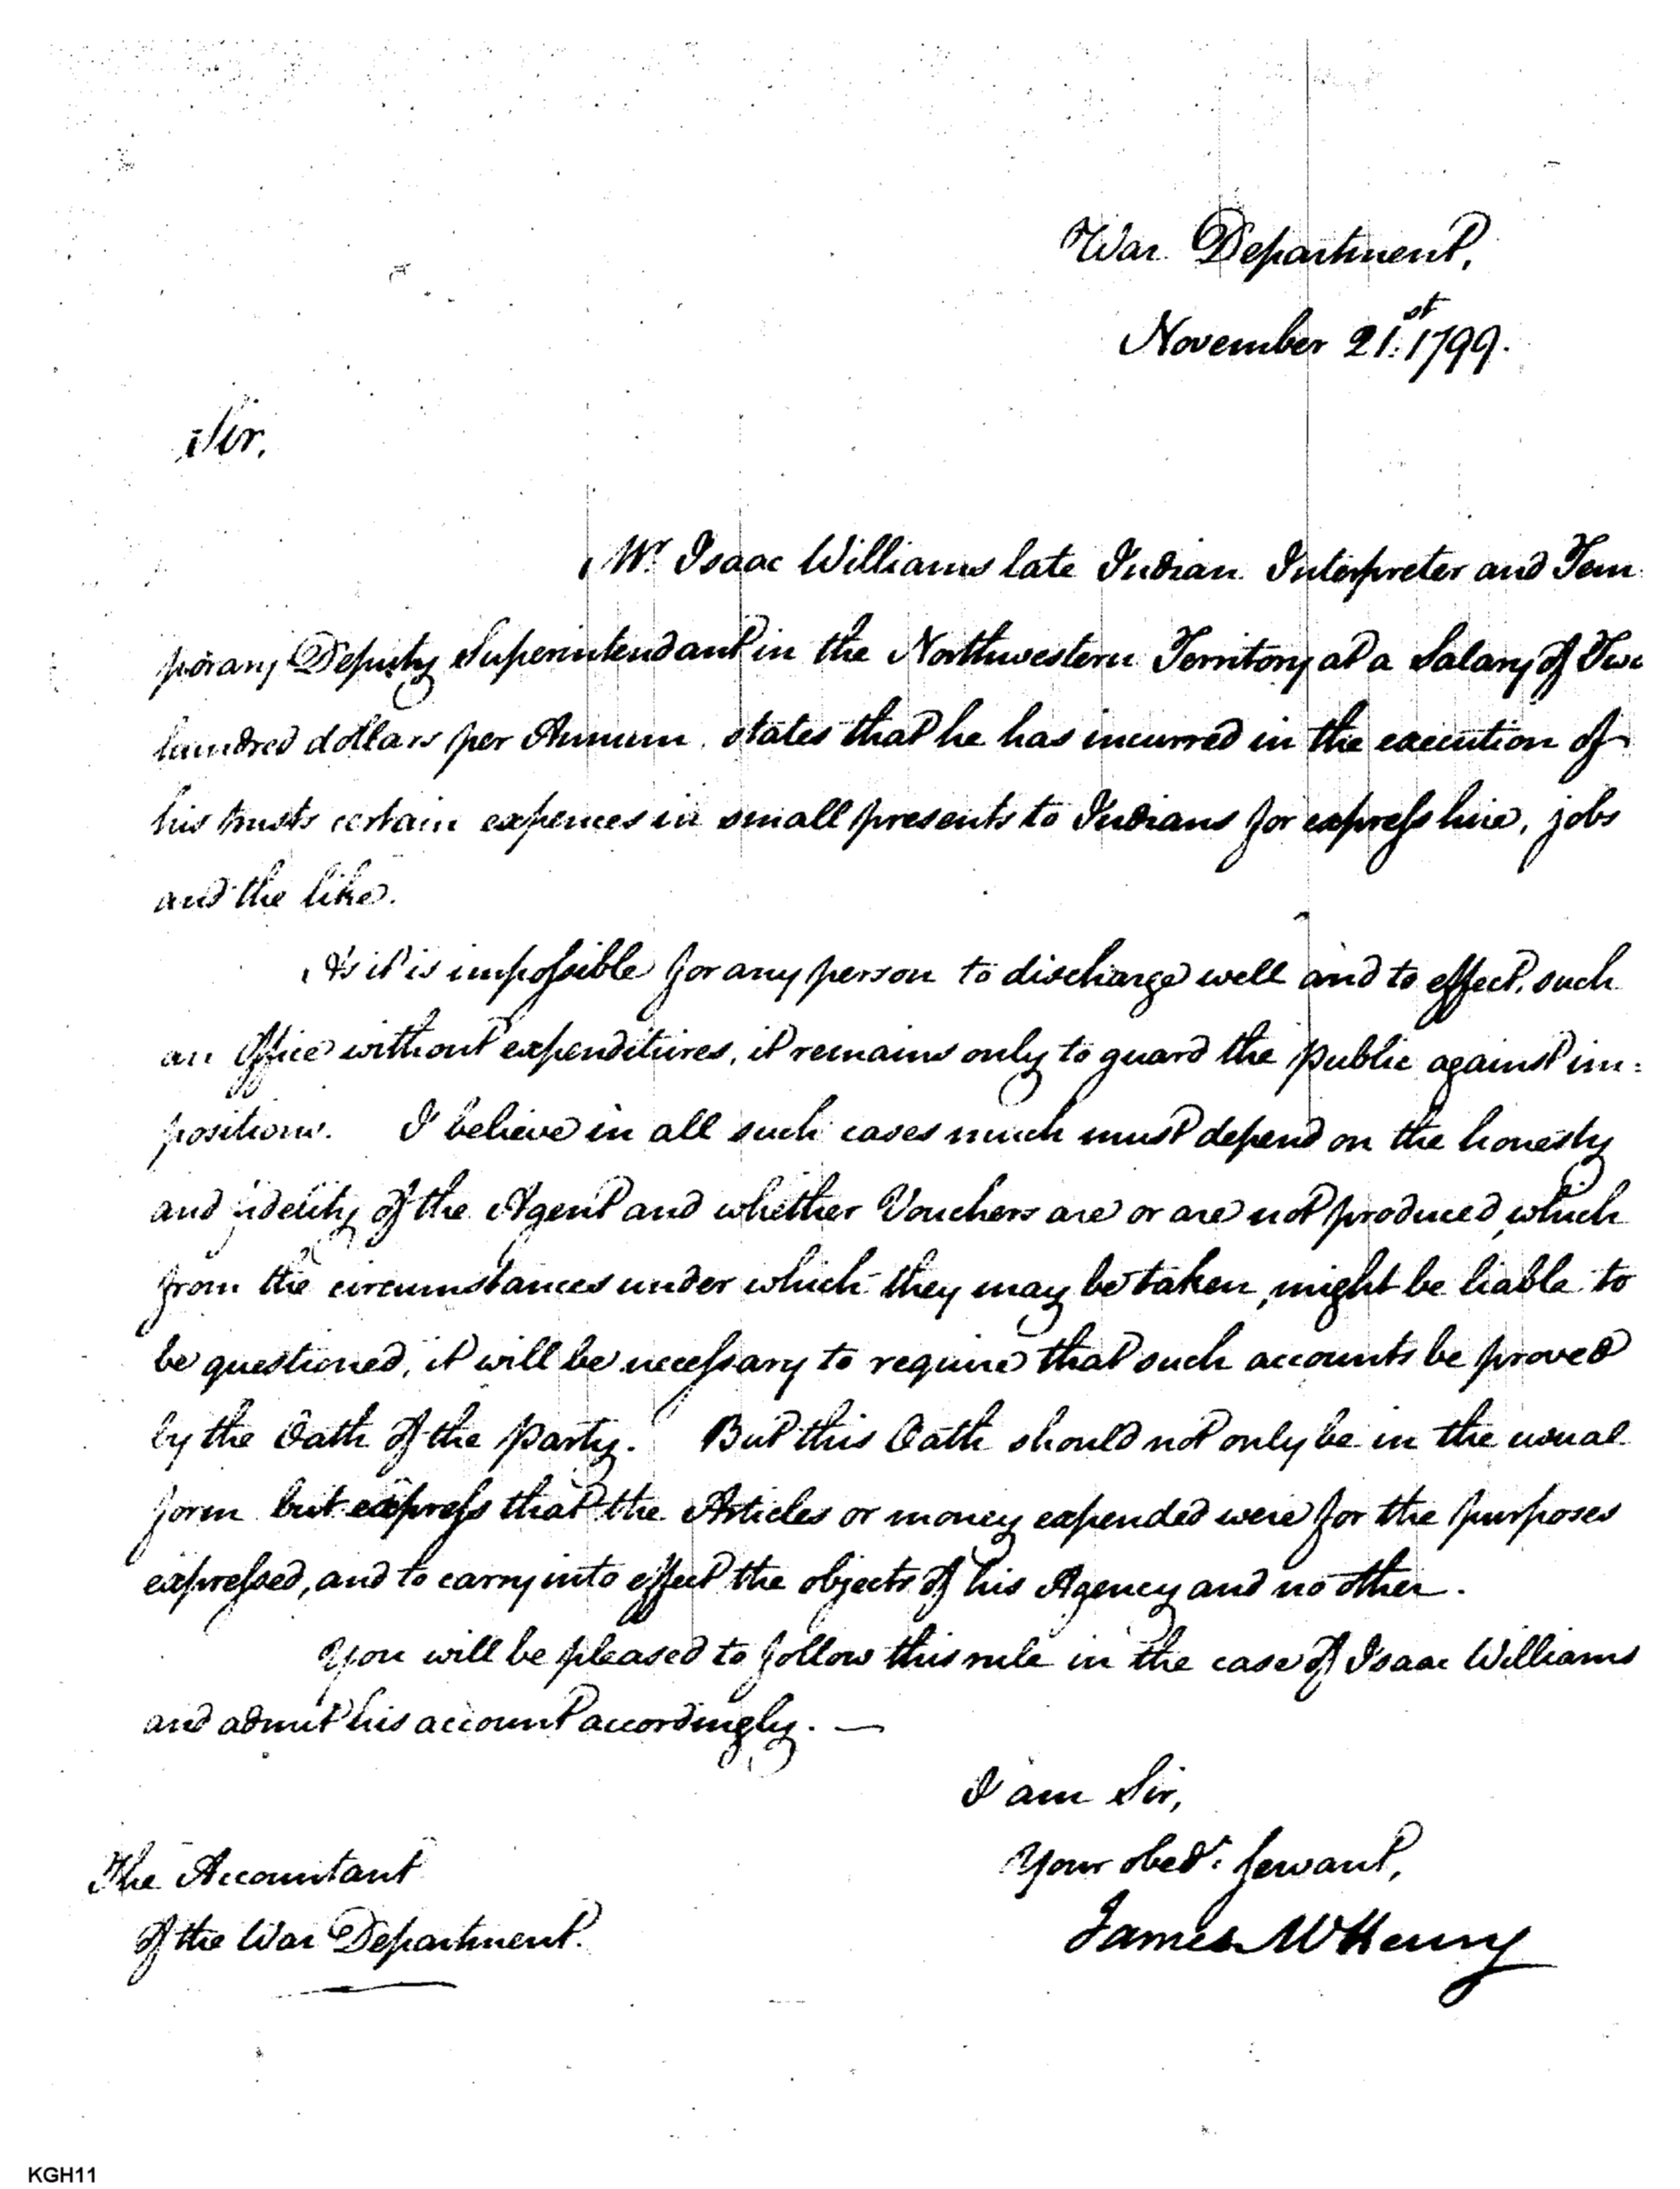 War Department,
November 21.st 1799.
Sir,
Mr. Isaac Williams late Indian Interpreter and Tem
porary Deputy Superintendant in the Northwestern Territory at a Salary of Two
hundred dollars per Annum, states that he has incurred in the execution of
his trusts certain expences in small presents to Indians for express hire, jobs
and the like.
As it is impossible for any person to discharge well and to effect, such
an Office without expenditures, it remains only to guard the public against im=
positions. I believe in all such cases much must depend on the honesty
and fidelity of the Agent and whether Vouchers are or are not produced, which
from the circumstances under which they may be taken, might be liable to
be questioned, it will be necessary to require that such accounts be proved
by the Oath of the party. But this Oath should not only be in the usual
form but express that the Articles or money expended were for the purposes
expressed, and to carry into effect the objects of his Agency and no other.
You will be pleased to follow this rule in the case of Isaac Williams
and admit his account accordingly. —
I am Sir,
Your obedt. Servant,
James McHenry
The Accountant
of the War Department.
KGH11